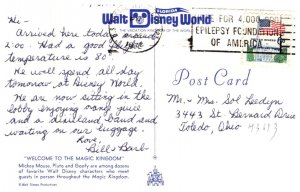 FLORIDA
Walt Disney World
THE VACATION KINGDOM OF THE WORLD
E FOR 4,000,000
EPILEPSY FOUNDATION
OF AMERICA
Hi -
Arrived here today
2:00. Had a good
temperature is 80°.
We will spend all day
tomorrow at Disney World.
We are now sitting in the
lobby enjoying orange juice
and a dixieland band and
waiting on our luggage.
Love,
Bill & Barb
Post Card
Mr. & Mrs. Sol
3443 St Bernard Drive
Toledo, Ohio
43613
"WELCOME TO THE MAGIC KINGDOM"
Mickey Mouse, Pluto and Goofy are among dozens
of favorite Walt Disney characters who meet
guests in person throughout the Magic Kingdom.
©Walt Disney Productions